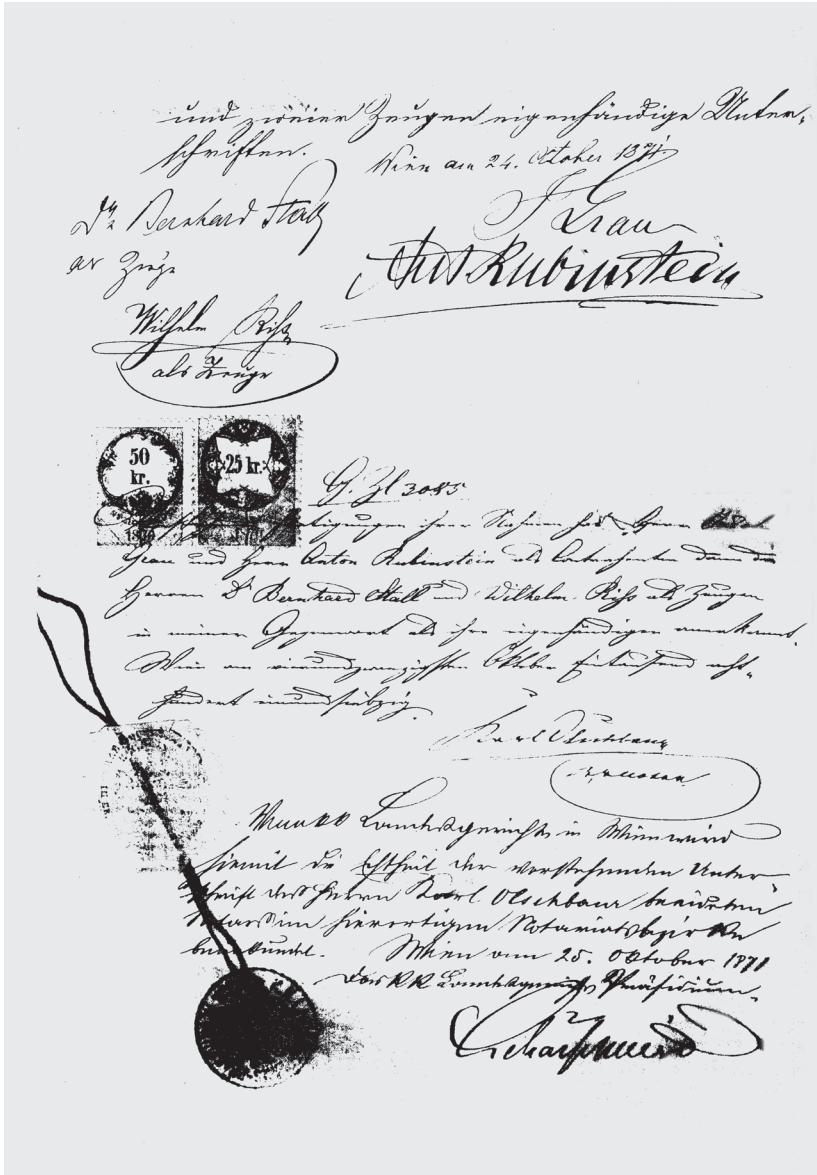 und zweier Zeugen eigenhändige Unter-
schriften.
Wien am 24. October 1871
Dr. Bernhard Stall
als Zeuge
J Grau
Ant Rubinstein
Wilhelm Riß
als Zeuge
50
kr.
25 kr.
G. Zl 3085
ihrer Namen Herrn
Grau und Herr Anton Rubinstein als Contrahenten dann die
Herren Dr Bernhard Stall und Wilhelm Riß als Zeugen
in meiner Gegenwart als ihre eigenhändigen anerkannt.
Wien am vierundzwanzigsten Oktober Eintausend acht-
hundert einundsiebzig.
Karl Olschbaur
k k Notar
Vom kk Landesgerichte in Wien wird
hiemit die Echtheit der vorstehenden Unter-
schrift des Herrn Karl Olschbaur beeideten
Notars im hierortigen Notariatsbezirke
beurkundet. Wien am 25. Oktober 1871
Das KK Landesgerichts Präsidium